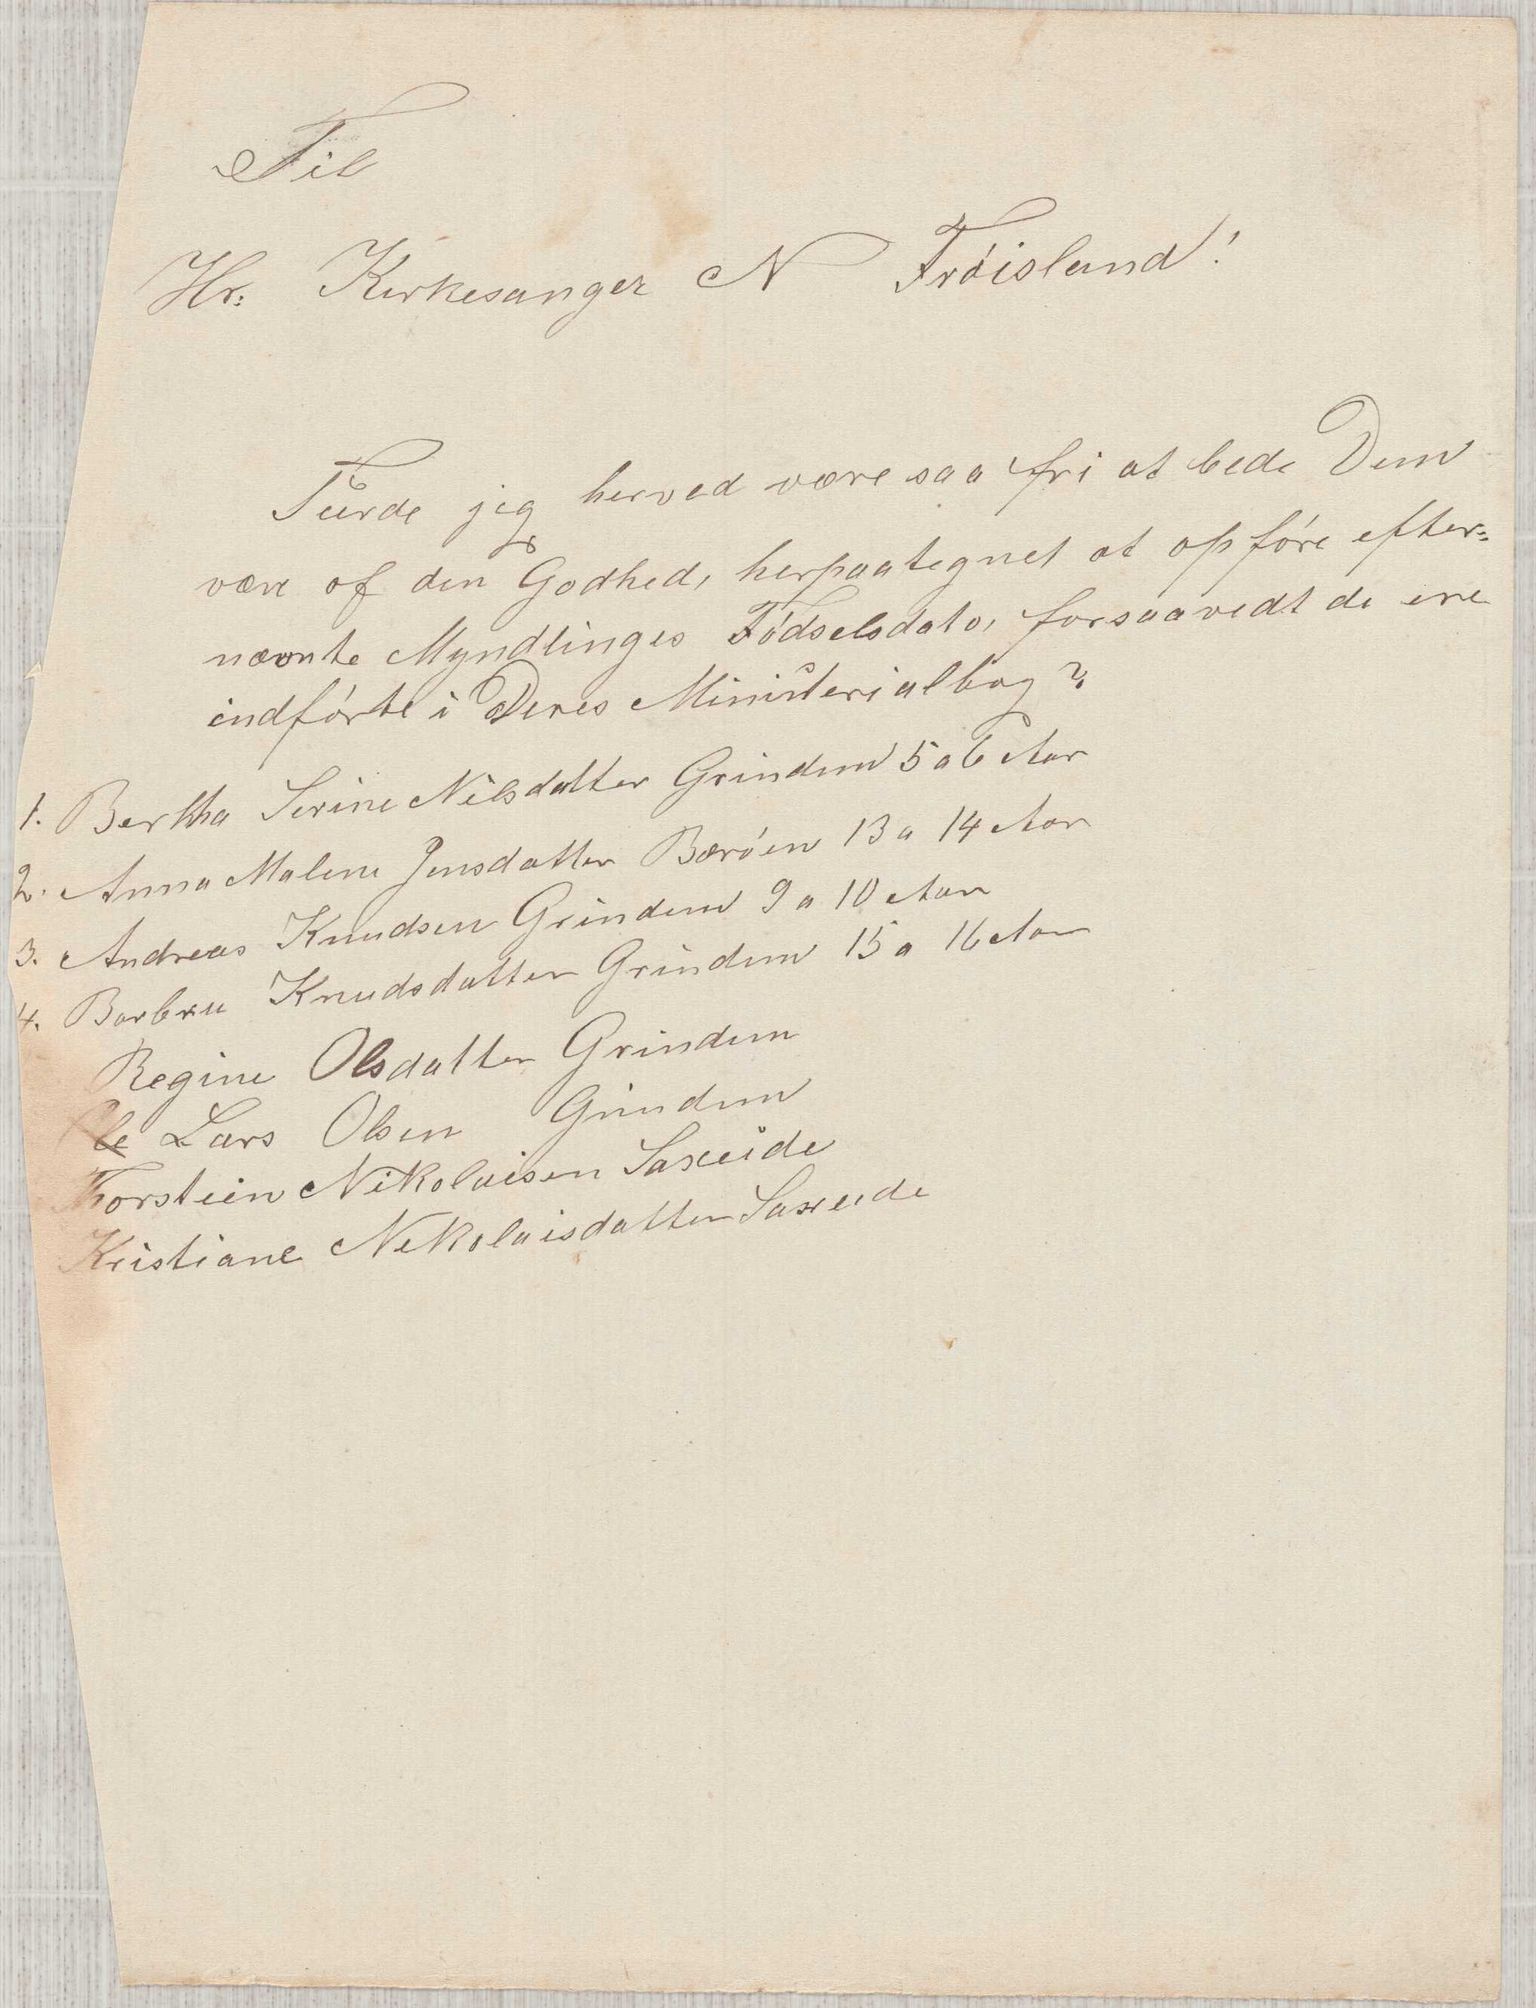 Til
Hr. Kirkesanger N Frøisland!
Turde jeg herved være saa fri at bede Dem
være af den Godhed, herpaategnet at opføre efter=
nævnte Myndlinges Fødselsdato, forsaavedt de ere
indførte i Deres Ministerialbog?
1. Bertha Serine Nilsdatter Grindem 5 a 6 Aar
2. Anna Malene Jensdatter Bærøen 13 a 14 Aar
3. Andreas Knudsen Grindem 9 a 10 Aar
4. Barbru Knudsdatter Grindem 15 a 16 Aar
Regine Olsdatter Grindem
Lars Olsen Grindem
Thorstein Nikolaisen Saxeide
Kristiane Nikolaisdatter Saxeide